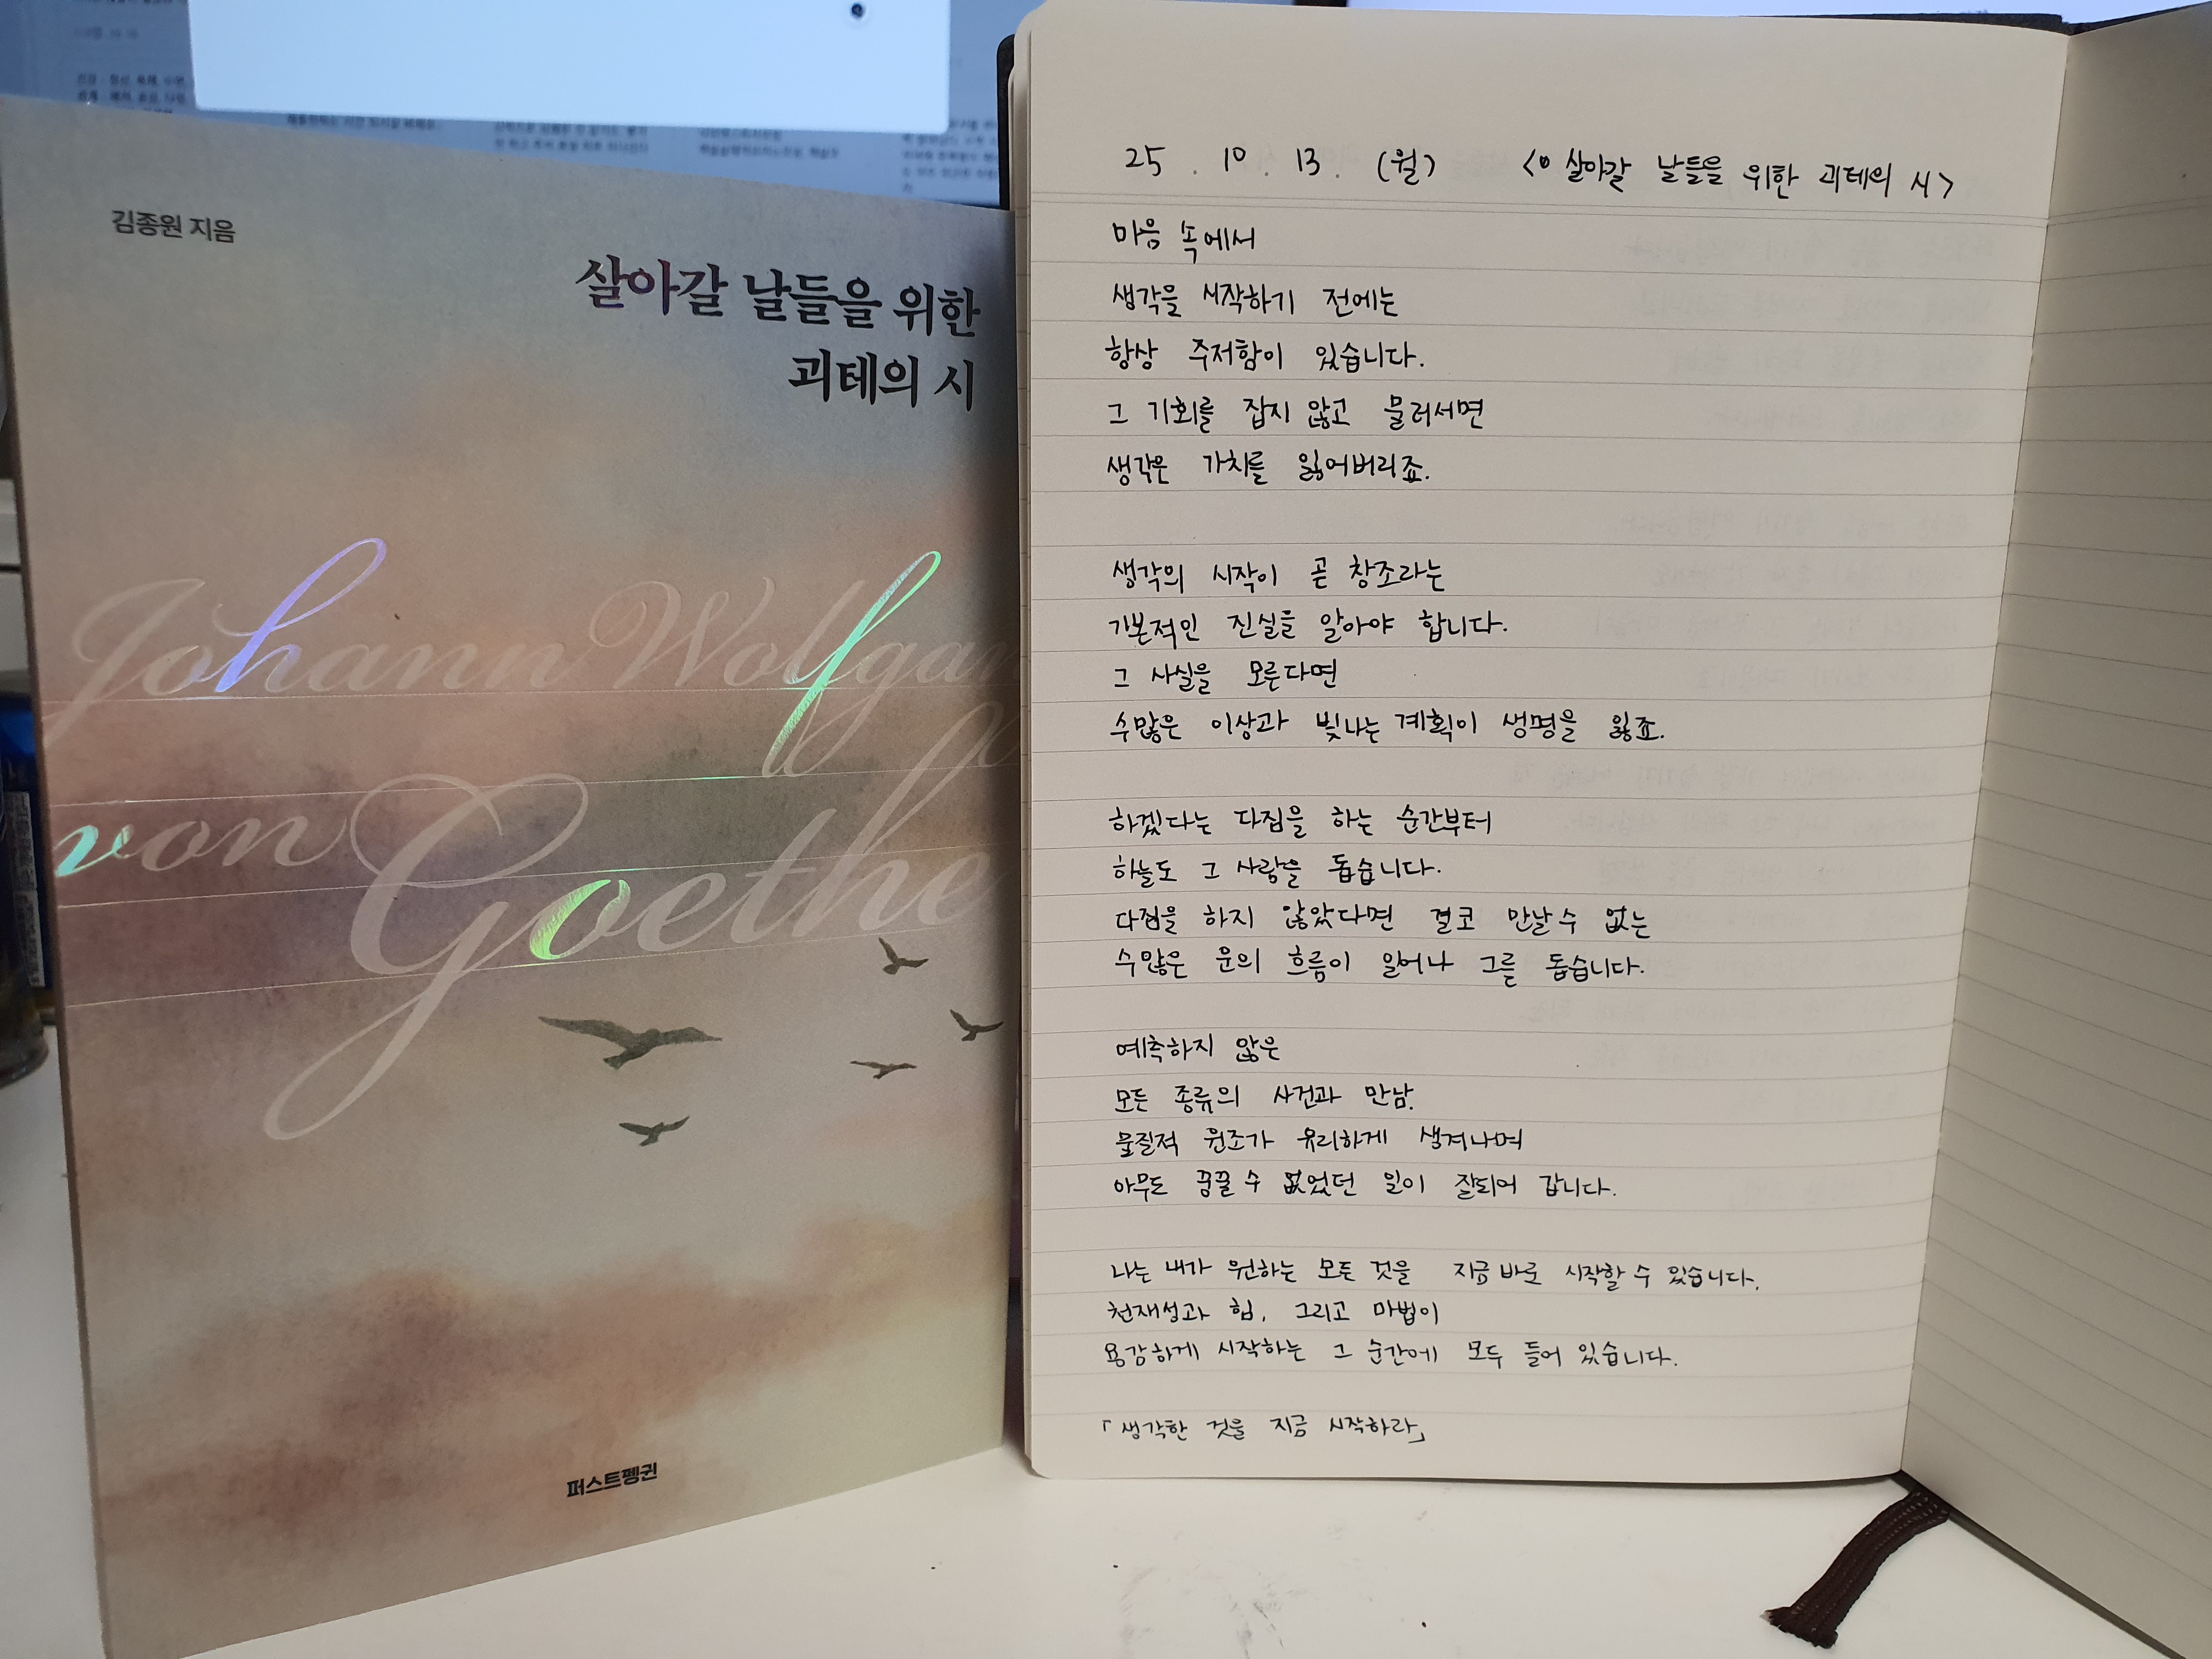 김종원 지음
살아갈 날들을 위한
괴테의 시
Johann Wolfgan
von Goethe
퍼스트펭귄
25 . 10 . 13 . (월) 살아갈 날들을 위한 괴테의 시>
마음 속에서
생각을 시작하기 전에는
항상 주저함이 있습니다.
그 기회를 잡지 않고 물러서면
생각은 가치를 잃어버리죠.
생각의 시작이 곧 창조라는
기본적인 진실을 알아야 합니다.
그 사실을 모른다면
수많은 이상과 빛나는 계획이 생명을 잃죠.
하겠다는 다짐을 하는 순간부터
하늘도 그 사람을 돕습니다.
다짐을 하지 않았다면 결코 만날 수 없는
수많은 운의 흐름이 일어나 그를 돕습니다.
예측하지 않은
모든 종류의 사건과 만남,
물질적 원조가 유리하게 생겨나며
아무도 꿈꿀 수 없었던 일이 잘되어 갑니다.
나는 내가 원하는 모든 것을 지금 바로 시작할 수 있습니다.
천재성과 힘, 그리고 마법이
용감하게 시작하는 그 순간에 모두 들어 있습니다.
「생각한 것을 지금 시작하라」